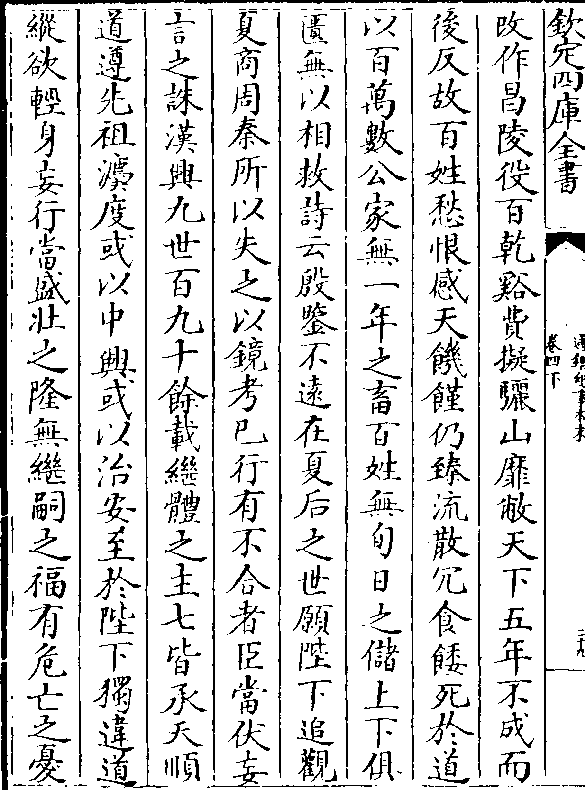 欽定四庫全書
通鑑紀事本末
卷四下
改作昌陵役百乾谿費擬驪山靡敝天下五年不成而
後反故百姓愁恨感天饑饉仍臻流散冗食餧死於道
以百萬數公家無一年之畜百姓無旬日之儲上下俱
匱無以相救詩云殷鑒不遠在夏后之世願陛下追觀
夏商周秦所以失之以鏡考已行有不合者臣當伏妄
言之誅漢興九世百九十餘載繼體之主七皆承天順
道遵先祖灋度或以中興或以治安至於陛下獨違道
縱欲輕身妄行當盛壯之隆無繼嗣之福有危亡之憂